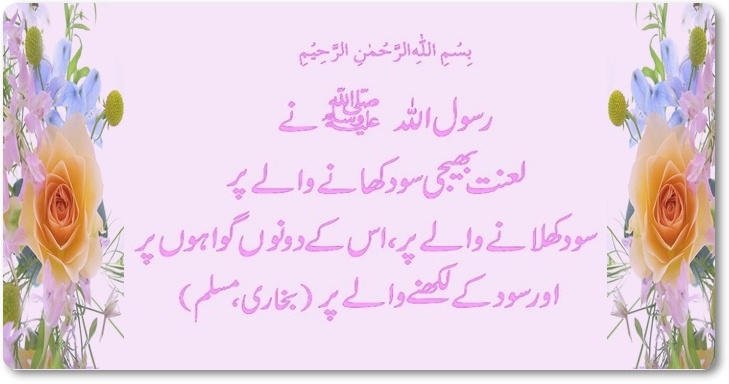 بِسْمِ اللهِ الرَّحْمٰنِ الرَّحِيْمِ
رسول اللہ ﷺ نے
لعنت بھیجی سود کھانے والے پر
سود کھلانے والے پر، اس کے دونوں گواہوں پر
اور سود کے لکھنے والے پر (بخاری، مسلم)